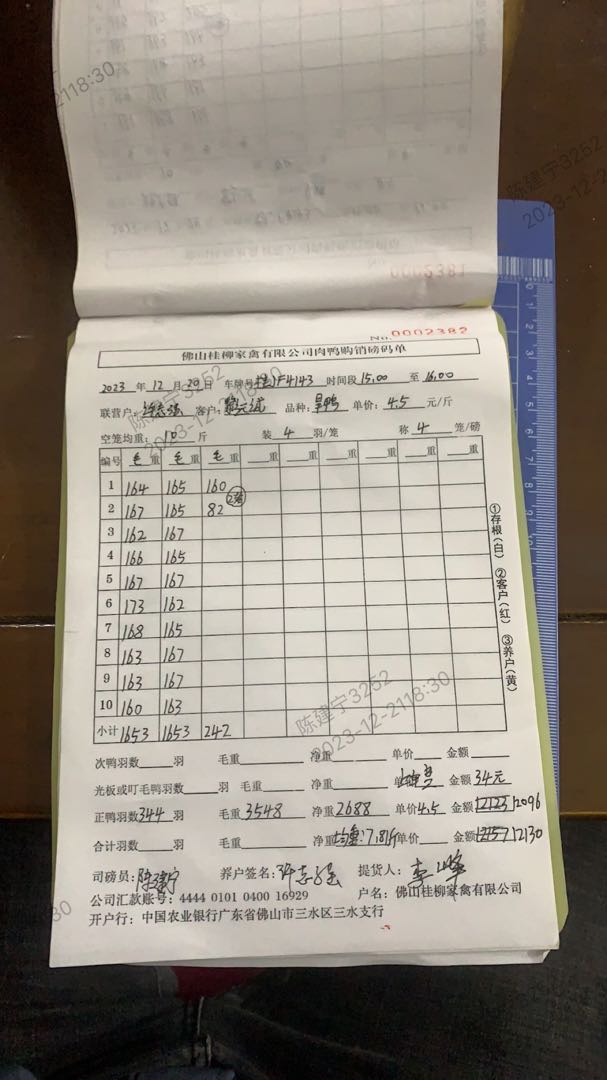 0002381
No. 0002382
佛山桂柳家禽有限公司肉鸭购销磅码单
2023 年 12 月 20 日 车牌号 F4143 时间段 15:00 至 16:00
联营户: 许志强 客户: 品种: 旱鸭 单价: 4.5 元/斤
空笼均重: 10 斤 装 4 羽/笼 称 4 笼/磅
编号 毛重 毛重 毛重 重 重 重 重 重
1 164 165 160
2 167 165 82 2笼
3 162 167
4 166 165
5 167 167
6 173 162
7 168 165
8 163 167
9 163 167
10 160 163
小计 1653 1653 242
①存根(白) ②客户(红) ③养户(黄)
次鸭羽数 羽 毛重 净重 单价 金额
光板或叮毛鸭羽数 羽 毛重 净重 单价 金额 34元
正鸭羽数 344 羽 毛重 3548 净重 2688 单价 4.5 金额 12123 12096
合计羽数 羽 毛重 净重 均重:7.81斤 单价 金额 12157 12130
司磅员: 陈建宁 养户签名: 许志强 提货人: 李
公司汇款账号: 4444 0101 0400 16929 户名: 佛山桂柳家禽有限公司
开户行: 中国农业银行广东省佛山市三水区三水支行
陈建宁3252
2023-12-2118:30